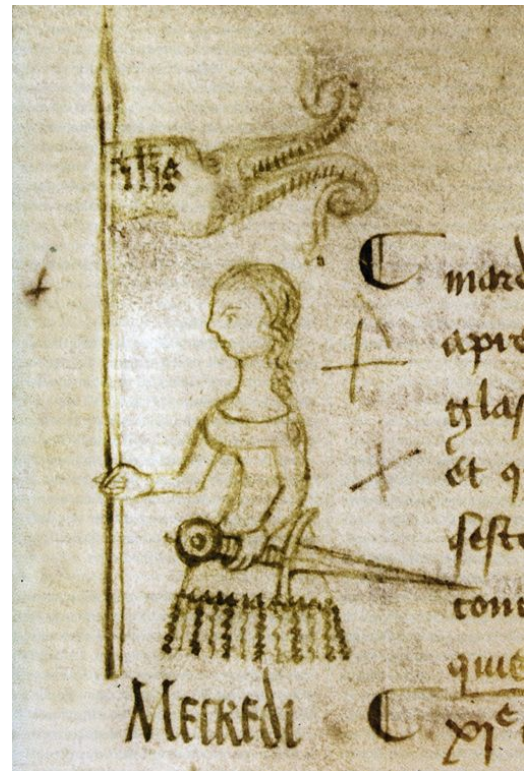 ihs
mard
apre
glas
et q
sest
com
quie
Mecredi
xie